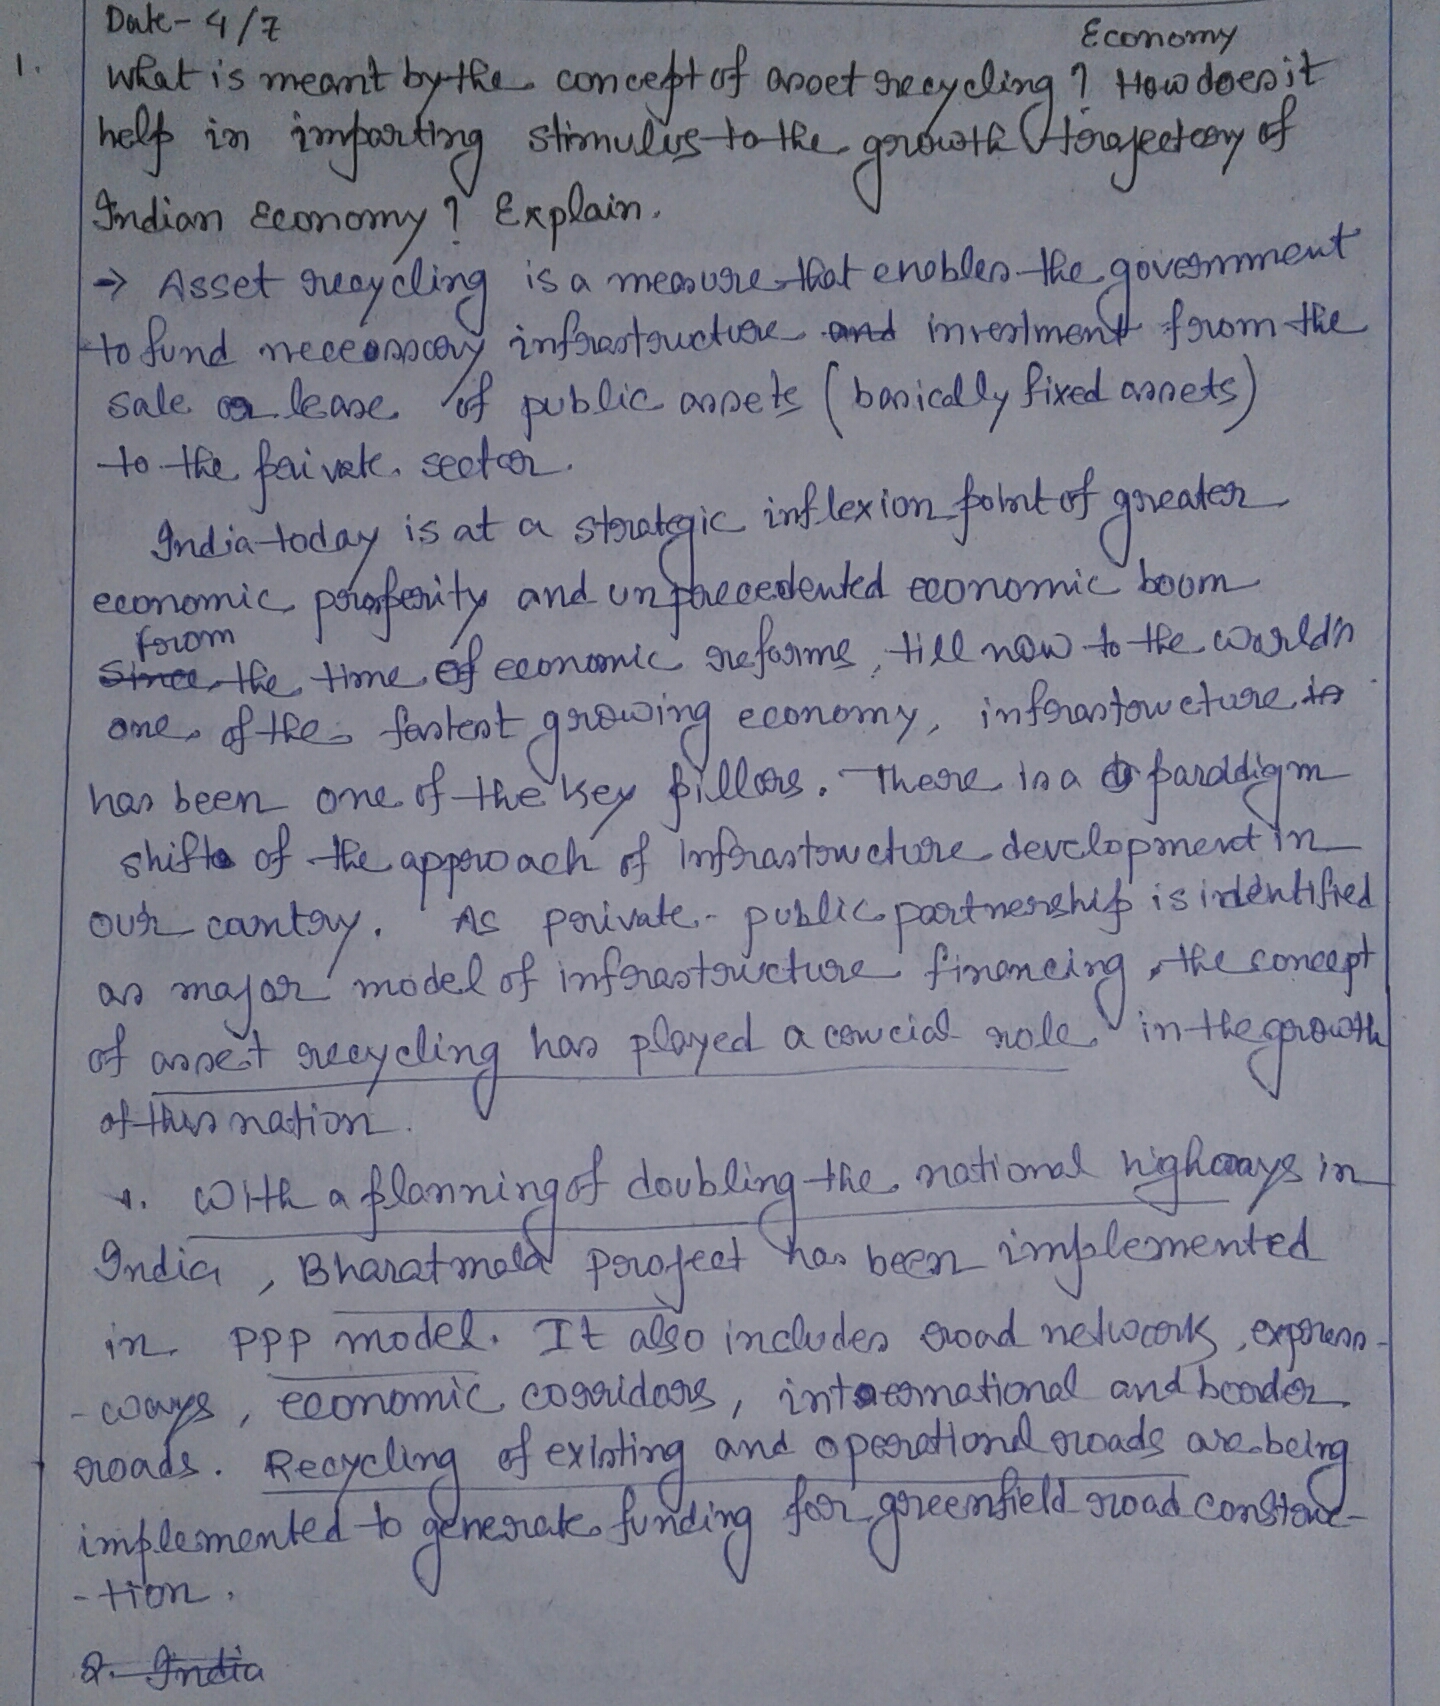 Date - 4/7
Economy
1. What is meant by the concept of asset recycling? How does it
help in imparting stimulus to the growth trajectory of
Indian Economy? Explain.
→ Asset recycling is a measure that enables the government
to fund necessary infrastructure and investment from the
sale or lease of public assets (basically fixed assets)
to the private sector.
India today is at a strategic inflexion point of greater
economic prosperity and unprecedented economic boom
from
Since the time of economic reforms, till now to the world's
one of the fastest growing economy, infrastructure is
has been one of the key pillars. There is a paradigm
shift of the approach of infrastructure development in
our cantry. As private-public partnership is indentified
as major model of infrastructure financing, the concept
of asset recycling has played a crucial role in the growth
of this nation.
1. With a planning of doubling the national highways in
India, Bharatmala project has been implemented
in PPP model. It also includes road network, express-
-ways, economic corridors, international and border
roads. Recycling of existing and operational roads are being
implemented to generate funding for greenfield road construc-
-tion.
2. India